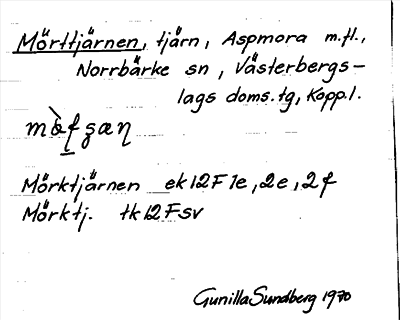 Mörttjärnen, tjärn, Aspmora m.fl.,
Norrbärke sn, Västerbergs-
lags doms.tg, Kopp.l.
Mörktjärnen ek12F1e, 2e, 2f
Mörktj. tk12Fsv
Gunilla Sundberg 1970